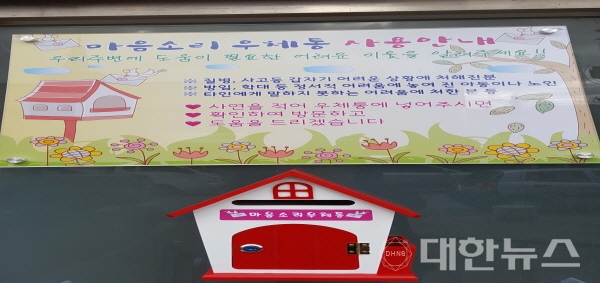 마음소리 우체통 사용안내
우리주변에 도움이 필요한 어려운 이웃을 알려주세요!!
※ 질병, 사고등 갑자기 어려운 상황에 처해진분
※ 방임, 학대 등 정서적 어려움에 놓여 진 아동이나 노인
※ 타인에게 말하지 못하는 어려움에 처한 분 등
♥ 사연을 적어 우체통에 넣어주시면
♥ 확인하여 방문하고
♥ 도움을 드리겠습니다
마음소리우체통
DHNS 대한뉴스